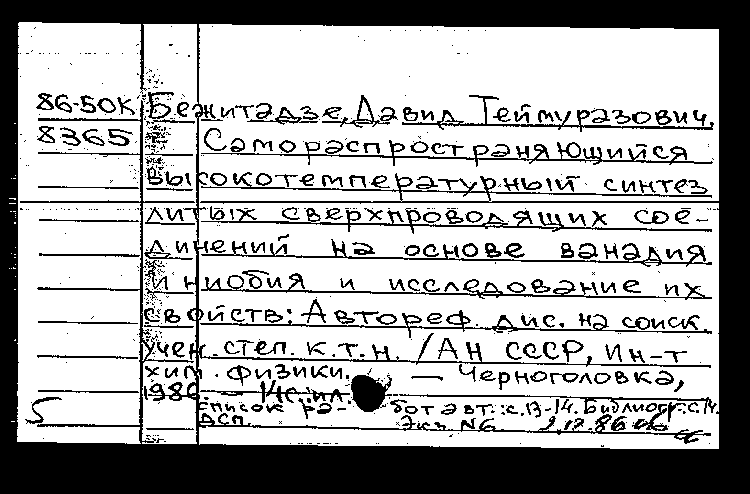 86-50К Бежитадзе, Давид Теймуразович.
8365 Самораспространяющийся
высокотемпературный синтез
литых сверхпроводящих сое-
динений на основе ванадия
и ниобия и исследование их
свойств: Автореф. дис. на соиск.
учен. степ. к.т.н. / АН СССР, Ин-т
хим. физики. — Черноголовка,
1986. — 14с.: ил.
5 Список ра- бот авт.: с.13-14. Библиогр.: с.14.
ДСП. Экз. №6. 2.12.86